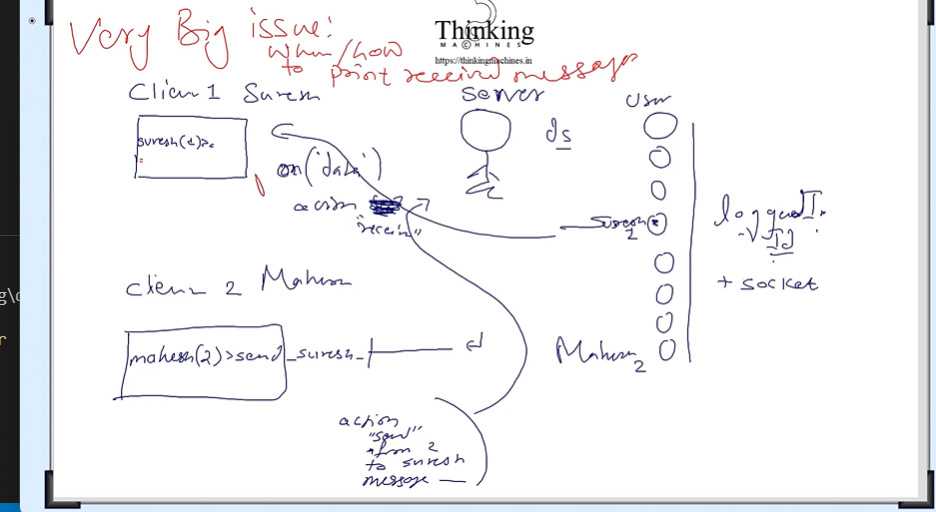 Very Big issue:
when/how
to print received message
Thinking
MACHINES
https://thinkingmachines.in
Client 1 Suresh
Server
User
suresh(1)>
on('data')
ds
action
"receive"
Suresh
1
loggedI.
ID
+ socket
Client 2 Mahesh
mahesh(2)>send suresh
d
Mahesh
2
action
"send"
from 2
to suresh
message